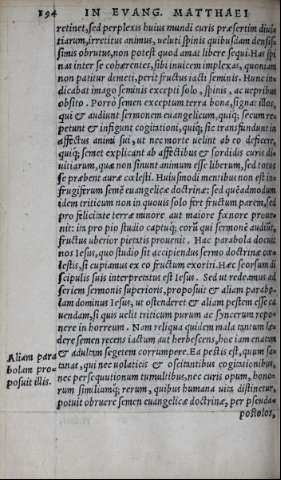 194 IN EVANG. MATTHAEI
retinet, sed perplexis huius mundi curis præsertim divi
tiarum, irretitus animus, ueluti spinis quibusdam densis=
simis obrutus, non potest quod amat libere sequi. Has spi
nas inter se cohærentes, sibi inuicem implexas, quoniam
non patitur demeti, perit fructus iacti seminis. Hunc in=
dicabat imago seminis excepti solo, spinis, ac uepribus
obsito. Porrò semen exceptum terra bona, signat illos,
qui & audiunt sermonem euangelicum, quiq; secum re=
petunt & infigunt cogitationi, quiq; sic transfundunt in
affectus animi sui, ut nec morte uelint ab eo desciscere,
quiq; semet explicant ab affectibus & sordidis curis di=
uitiarum, quæ non sinunt animum esse liberum, sed totos
se præbent auræ cælesti. Huiusmodi mentibus non est in=
frugiferum semẽ euangelicæ doctrinæ: sed quẽadmodum
idem triticum non in quouis solo fert fructum parem, sed
pro felicitate terræ minore aut maiore fœnore proue=
nit: ita pro pio studio captuq; eorũ qui sermonẽ audiũt,
fructus uberior pietatis prouenit. Hac parabola docuit
nos Iesus, quo studio sit accipiendus sermo doctrinæ cœ=
lestis, si cupiamus ex eo fructum exoriri. Hæc seorsum di
scipulis suis interpretatus est Iesus. Sed ut redeamus ad
seriem sermonis superioris, proposuit & aliam parabo=
lam dominus Iesus, ut ostenderet & aliam pestem esse ca
uendam, si quis uelit triticum purum ac syncerum repo=
nere in horreum. Nam reliqua quidem mala tantum læ=
dere semen recens iactum aut herbescens, hoc iam enatum
Aliam para & adultam segetem corrumpere. Ea pestis est, quum sa=
bolam pro= tanas, qui nec uolaticis & oscitantibus cogitationibus,
posuit illis. nec persequutionum tumultibus, nec curis opum, hono=
rum similiumq; rerum, quibus humana uita distinetur,
potuit obruere semen euangelicæ doctrinæ, per pseuda=
postolos,